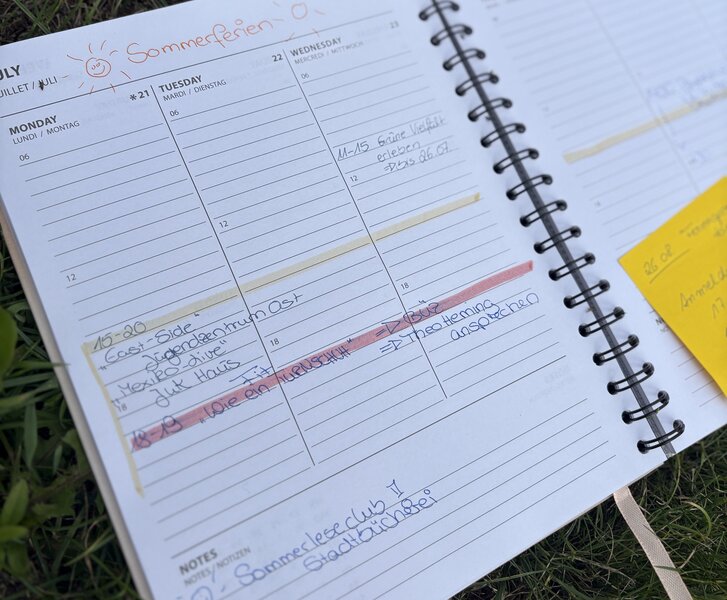 Sommerferien
JULY
JUILLET / JULI
MONDAY
LUNDI / MONTAG
*21
06
12
15-20
"East-Side"
Jugendzentrum Ost
"Mexiko-live"
JuK Haus
18
18-19 "Wie ein Fit TURNSCHUH" => BÜZ
=> Theo Heming
ansprechen
TUESDAY
MARDI / DIENSTAG
22
06
12
18
WEDNESDAY
MERCREDI / MITTWOCH
23
06
11-15 Grüne Vielfalt
erleben
=> bis 26.07
12
18
NOTES
NOTES/NOTIZEN
- Sommerleseclub
Stadtbücherei
26.08